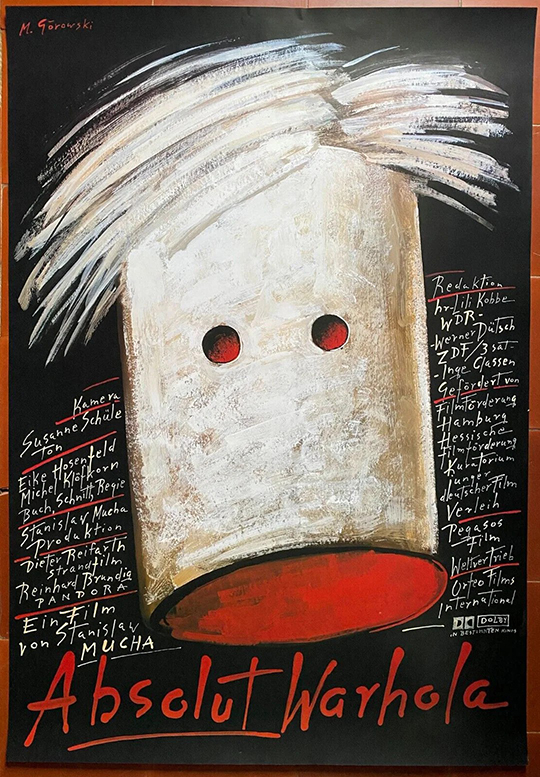 M. Górowski
Kamera
Susanne Schüle
Ton
Eike Hosenfeld
Michel Klöfkorn
Buch, Schnitt, Regie
Stanislaw Mucha
Produktion
Dieter Reifarth
strandfilm
Reinhard Brundig
PANDORA
Ein Film
von Stanislaw
MUCHA
Redaktion
hr-Lili Kobbe
WDR-
-Werner Dütsch
ZDF/3sat-
-Inge Classen
Gefördert von
Filmförderung
Hamburg
Hessische
Filmförderung
Kuratorium
junger
deutscher Film
Verleih
Pegasos
Film
Weltvertrieb
Orteo Films
International
DOLBY
IN BESTIMMTEN KINOS
Absolut Warhola